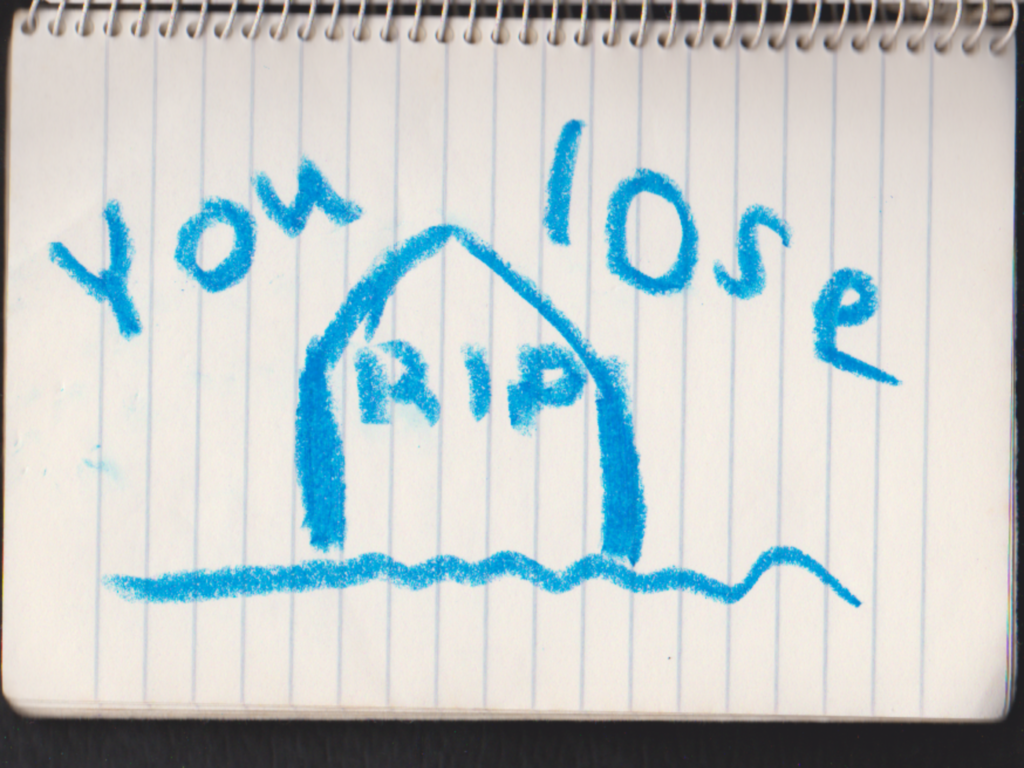 you lose
RIP